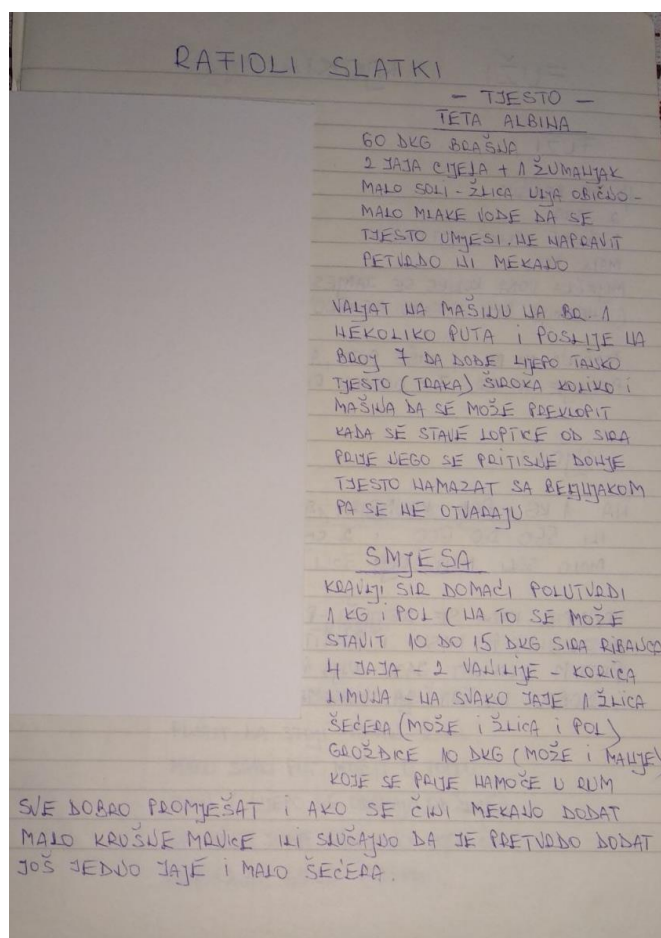 RAFIOLI SLATKI
- TJESTO -
TETA ALBINA
60 DKG BRAŠNA
2 JAJA CIJELA + 1 ŽUMANJAK
MALO SOLI - ŽLICA ULJA OBIČNO -
MALO MLAKE VODE DA SE
TJESTO UMJESI. NE NAPRAVIT
PETVRDO NI MEKANO
VALJAT NA MAŠINU NA BR. 1
NEKOLIKO PUTA i POSLIJE NA
BROJ 7 DA DOĐE LIJEPO TANKO
TJESTO (TRAKA) ŠIROKA KOLIKO i
MAŠINA DA SE MOŽE PREKLOPIT
KADA SE STAVE LOPTICE OD SIRA
PRIJE NEGO SE PRITISNE DONJE
TJESTO NAMAZAT SA BJELANJKOM
PA SE NE OTVARAJU
SMJESA
KRAVLJI SIR DOMAĆI POLUTVRDI
1 KG i POL (NA TO SE MOŽE
STAVIT 10 DO 15 DKG SIRA RIBANCA
4 JAJA - 2 VANILIJE - KORICA
LIMUNA - NA SVAKO JAJE 1 ŽLICA
ŠEĆERA (MOŽE i ŽLICA i POL)
GROŽDICE 10 DKG (MOŽE i MANJE)
KOJE SE PRIJE NAMOČE U RUM
SVE DOBRO PROMJEŠAT i AKO SE ČINI MEKANO DODAT
MALO KRUŠNE MRVICE ILI SLUČAJNO DA JE PRETVRDO DODAT
JOŠ JEDNO JAJE i MALO ŠEĆERA.